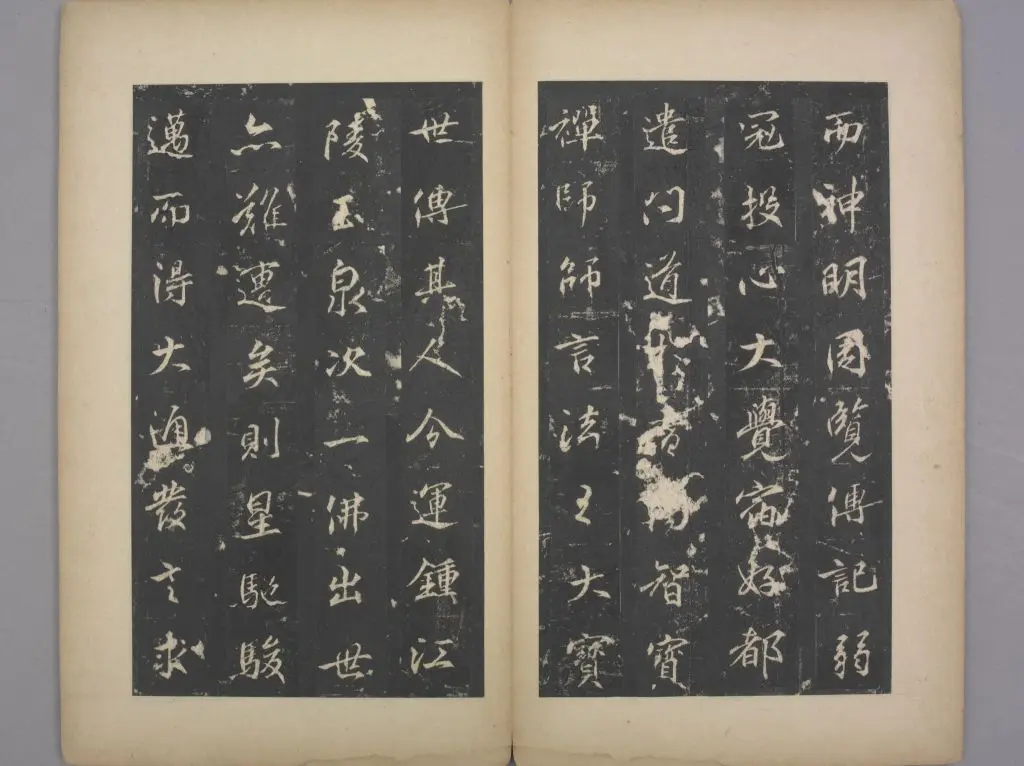 而神明周覽傳記弱
冠投心大覺宿好都
遣問道智寶
禪師師言法王大寶
世傳其人今運鍾江
陵玉泉次一佛出世
亦難遭矣則星馳駿
邁而得大通發言求